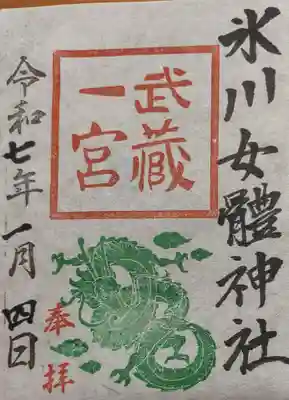 氷川女體神社
武藏
一宮
奉拝
令和七年一月四日